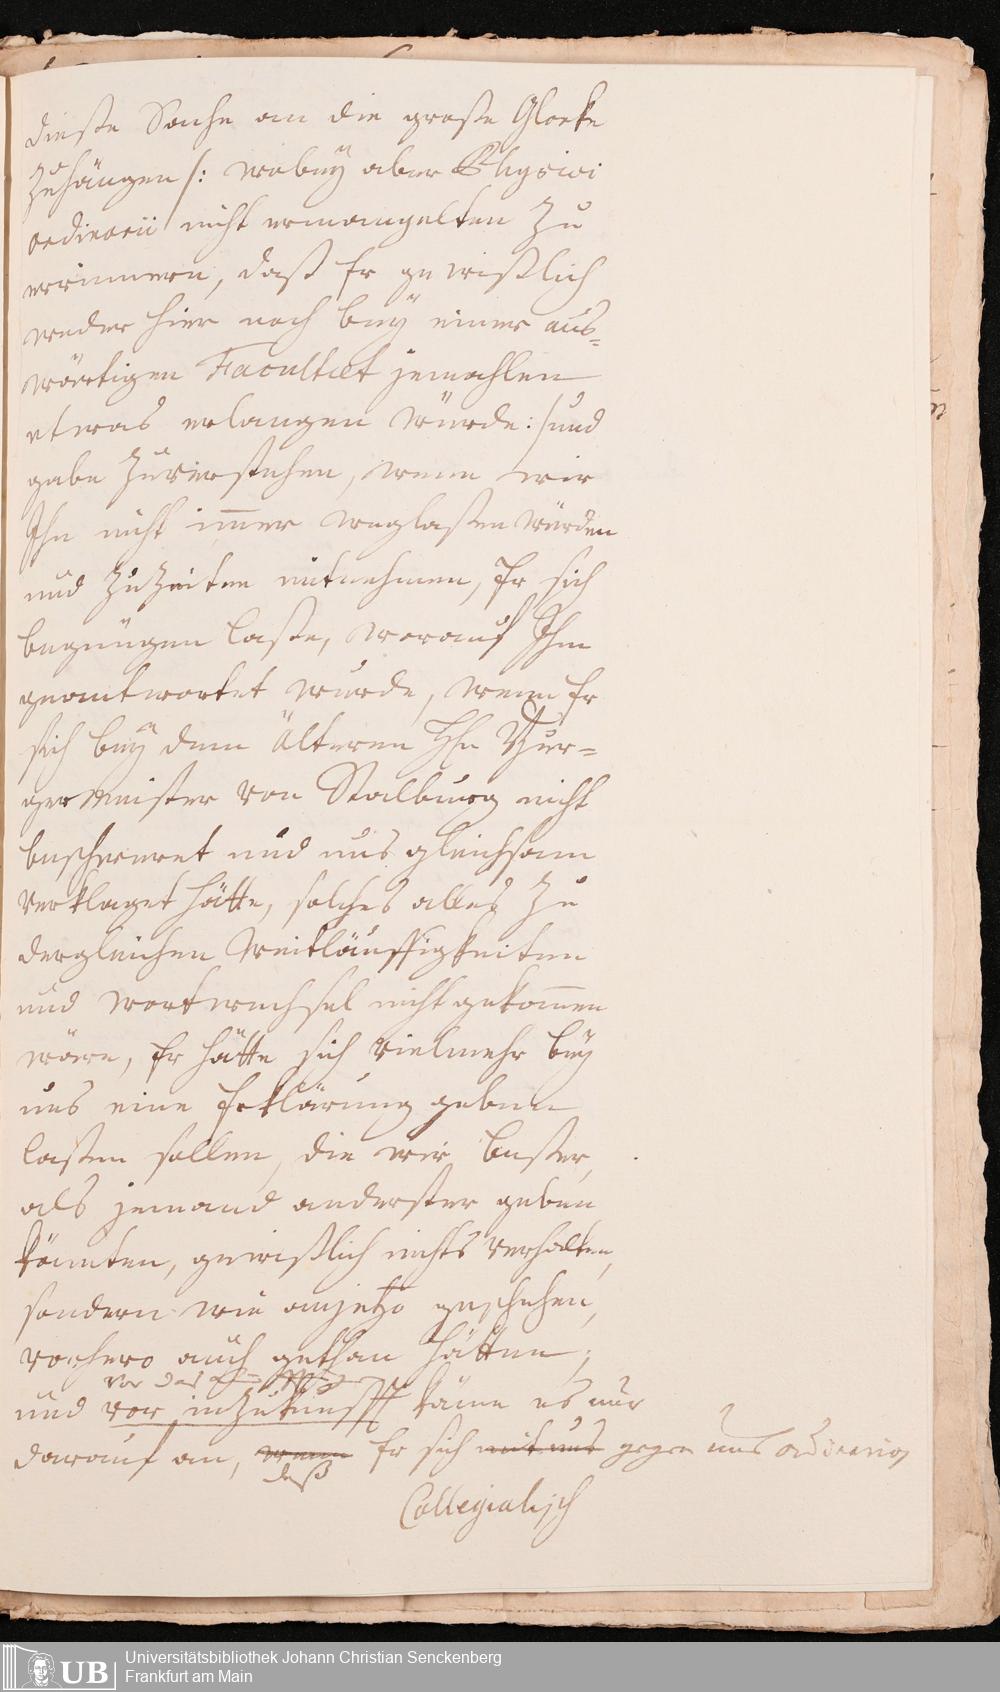 dieße Sache an die große Glocke
Zuhängen /: wobeÿ aber Physici
ordinarii nicht ermangelten Zu
erinnern, daß Er gewißlich
weder hier noch beÿ einer aus-
wärtigen Facultæt jemahlen
etwas erlangen würde :/ und
gabe Zuverstehen, wenn wir
Ihn nicht im̅er weglaßen würden
und Zu Zeiten mitnehmen, Er sich
begnügen laße, worauf Ihm
geantwortet wurde, wenn Er
sich beÿ dem Älteren Hn Bur-
germeister von Stalburg nicht
beschweret und uns gleichsam
verklaget hätte, solches alles Zu
dergleichen Weitläuffigkeiten
und wortwechsel nicht gekom̅en
wäre, Er hätte sich vielmehr beÿ
uns eine Erklärung geben
laßen sollen, die wir beßer,
als jemand anderster geben
könnten, gewißlich nichts verhalten,
sondern wie anjetzo geschehen,
vorhero auch gethan hätten;
vor das
und vor inZukunfft käme es nur
darauf an, wenn Er sich mit uns gegen uns ordinarios
daß
Collegialisch
Universitätsbibliothek Johann Christian Senckenberg
Frankfurt am Main
UB